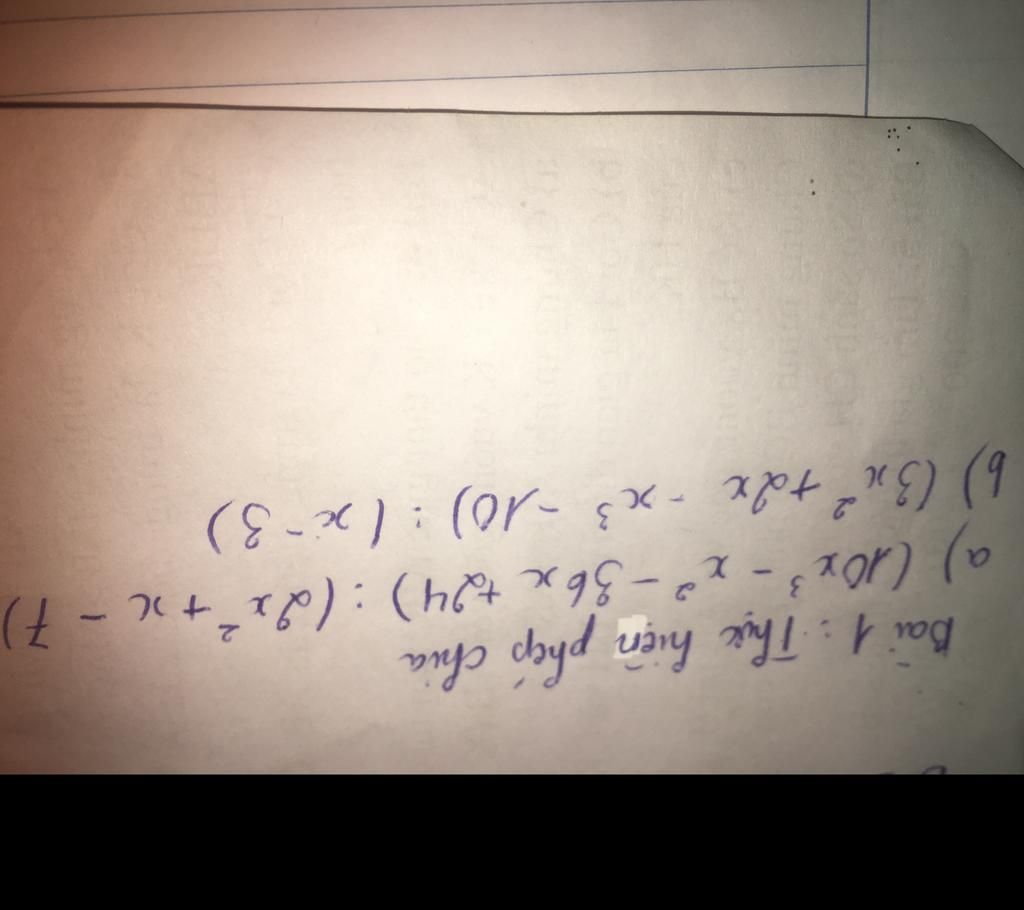 Bài 1: Thực hiện phép chia
a) (10x³ - x² - 36x + 24) : (2x² + x - 7)
b) (3x² + 2x - x³ - 10) : (x - 3)